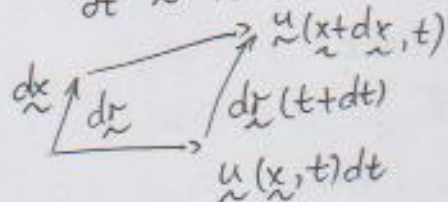 dt
u(x+dx, t)
dx
dr
dr(t+dt)
u(x, t)dt